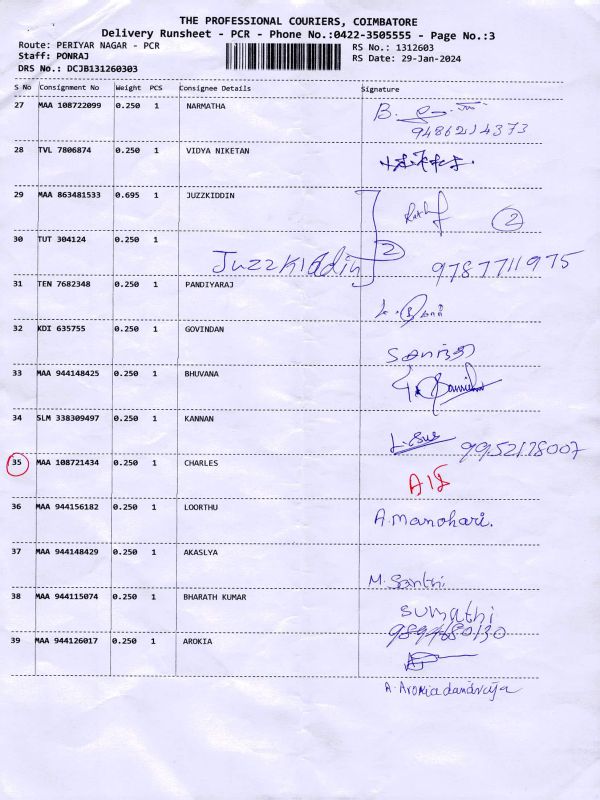 THE PROFESSIONAL COURIERS, COIMBATORE
Delivery Runsheet - PCR - Phone No.:0422-3505555 - Page No.:3
Route: PERIYAR NAGAR - PCR RS No.: 1312603
Staff: PONRAJ RS Date: 29-Jan-2024
DRS No.: DCJB131260303
S No Consignment No Weight PCS Consignee Details Signature
27 MAA 108722099 0.250 1 NARMATHA B.
9486214373
28 TVL 7806874 0.250 1 VIDYA NIKETAN
29 MAA 863481533 0.695 1 JUZZKIDDIN
2
30 TUT 304124 0.250 1 JuzzKiddin 2 9787711975
31 TEN 7682348 0.250 1 PANDIYARAJ
32 KDI 635755 0.250 1 GOVINDAN
33 MAA 944148425 0.250 1 BHUVANA
34 SLM 338309497 0.250 1 KANNAN
9952178007
35 MAA 108721434 0.250 1 CHARLES
36 MAA 944156182 0.250 1 LOORTHU A.Manohari.
37 MAA 944148429 0.250 1 AKASLYA
M. Santhi
38 MAA 944115074 0.250 1 BHARATH KUMAR Sumathi
39 MAA 944126017 0.250 1 AROKIA